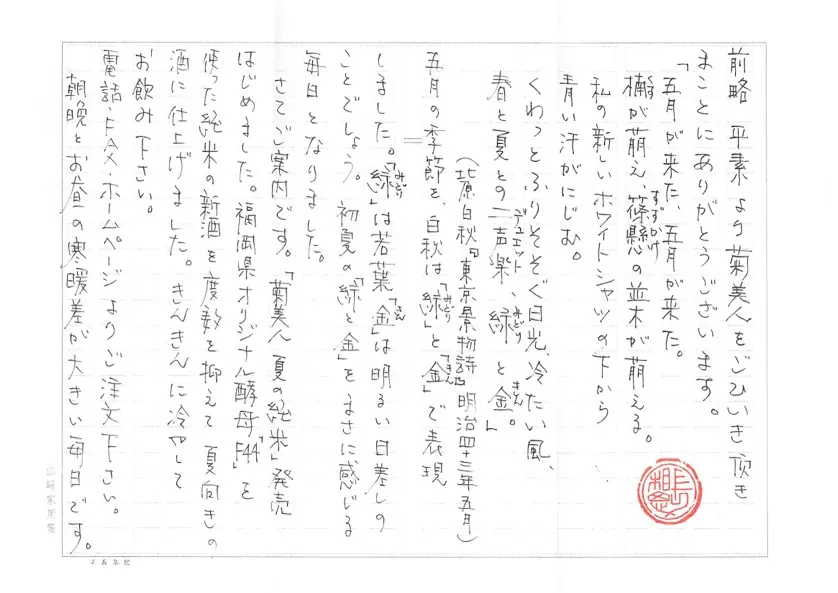 前略 平素より菊美人をごひいき頂き
まことにありがとうございます。
「五月が来た、五月が来た。
楠が萌え、篠懸の並木が萌える。
すずかけ
私の新しいホワイトシャツの下から
青い汗がにじむ。
くわっとふりそそぐ日光、冷たい風、
春と夏との二声楽、緑と金。」
デュエット
みどり
きん
(北原白秋『東京景物詩』明治四十三年五月)
五月の季節を、白秋は「緑」と「金」で表現
みどり
きん
しました。「緑」は若葉、「金」は明るい日差しの
みどり
きん
ことでしょう。初夏の「緑と金」をまさに感じる
毎日となりました。
さてご案内です。「菊美人 夏の純米」発売
はじめました。福岡県オリジナル酵母「F44」を
使った純米の新酒を度数を抑えて夏向きの
酒に仕上げました。きんきんに冷やして
お飲み下さい。
電話・FAX・ホームページよりご注文下さい。
朝晩とお昼の寒暖差が大きい毎日です。